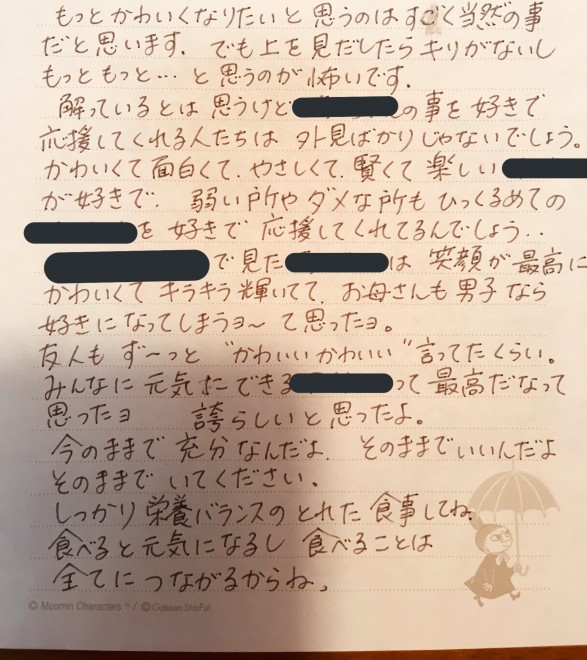 もっとかわいくなりたいと思うのはすごく当然の事
だと思います。でも上を見だしたらキリがないし
もっともっと…と思うのが怖いです。
解っているとは思うけど の事を好きで
応援してくれる人たちは外見ばかりじゃないでしょう。
かわいくて面白くて、やさしくて、賢くて楽しい
が好きで、弱い所やダメな所もひっくるめての
を好きで応援してくれてるんでしょう‥
で見た は笑顔が最高に
かわいくてキラキラ輝いてて、お母さんも男子なら
好きになってしまうョ〜て思ったョ。
友人もず〜っと“かわいいかわいい”言ってたくらい。
みんなに元気までできる って最高だなって
思ったョ 誇らしいと思ったよ。
今のままで充分なんだよ、そのままでいいんだよ
そのままでいてください。
しっかり栄養バランスのとれた食事してね、
食べると元気になるし食べることは
全てにつながるからね。
© Moomin Characters ™ / © Gakken Sta:Ful